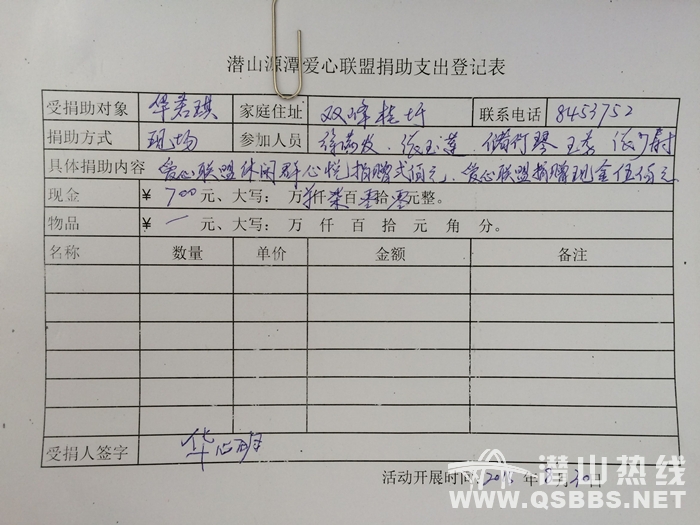 潜山源潭爱心联盟捐助支出登记表
受捐助对象 华若琪 家庭住址 双峰桂圩 联系电话 8453752
捐助方式 现场 参加人员 储竹琴 王秀
具体捐助内容 爱心联盟休闲群心悦捐赠弍佰元、爱心联盟捐赠现金伍佰元
现金 ¥ 700 元、大写: 万 仟 柒百 零拾 零元整。
物品 ¥ 一 元、大写: 万 仟 百 拾 元 角 分。
名称 数量 单价 金额 备注
受捐人签字 华
活动开展时间: 年 8月30日
潜山热线
WWW.QSBBS.NET